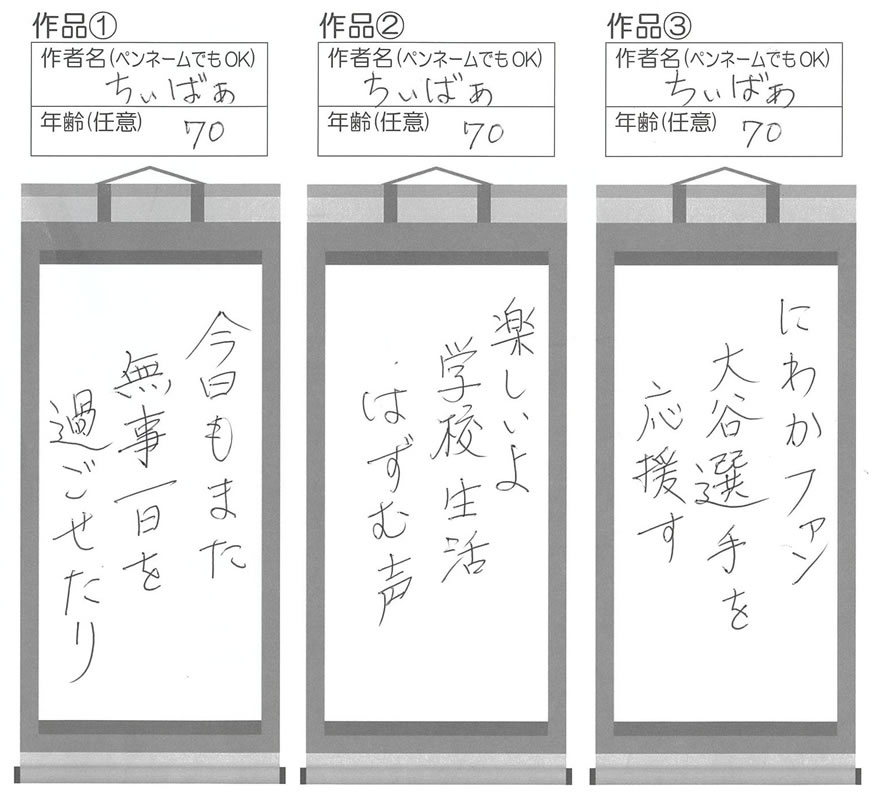 作品①
作者名(ペンネームでもOK)
ちぃばぁ
年齢(任意)
70
今日もまた
無事一日を
過ごせたり
作品②
作者名(ペンネームでもOK)
ちぃばぁ
年齢(任意)
70
楽しいよ
学校生活
はずむ声
作品③
作者名(ペンネームでもOK)
ちぃばぁ
年齢(任意)
70
にわかファン
大谷選手を
応援す